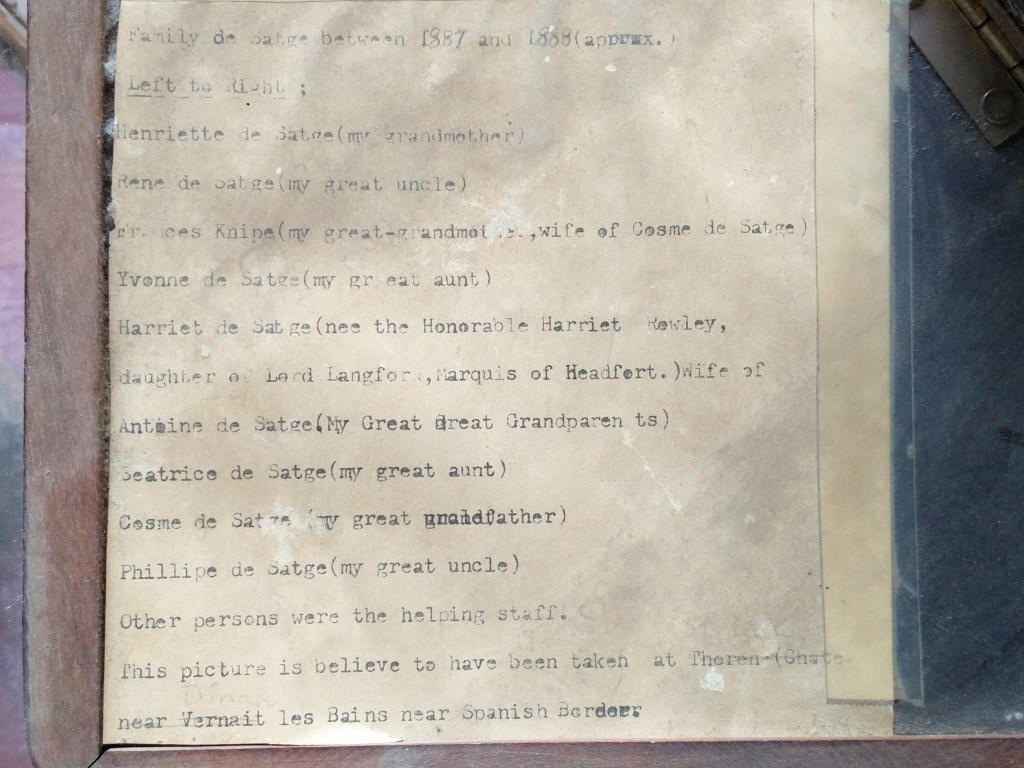 Family de Satge between 1887 and 1888(apprx.)
Left to Right ;
Henriette de Satge(my grandmother)
Rene de Satge(my great uncle)
Frances Knipe(my great-grandmother,wife of Cosme de Satge)
Yvonne de Satge(my gr eat aunt)
Harriet de Satge(nee the Honorable Harriet Rowley,
daughter of Lord Langford,Marquis of Headfort.)Wife of
Antoine de Satge(My Great Great Grandparen ts)
Beatrice de Satge(my great aunt)
Cosme de Satge (my great grandfather)
Phillipe de Satge(my great uncle)
Other persons were the helping staff.
This picture is believe to have been taken at Thoren (Chate
near Vernait les Bains near Spanish Border